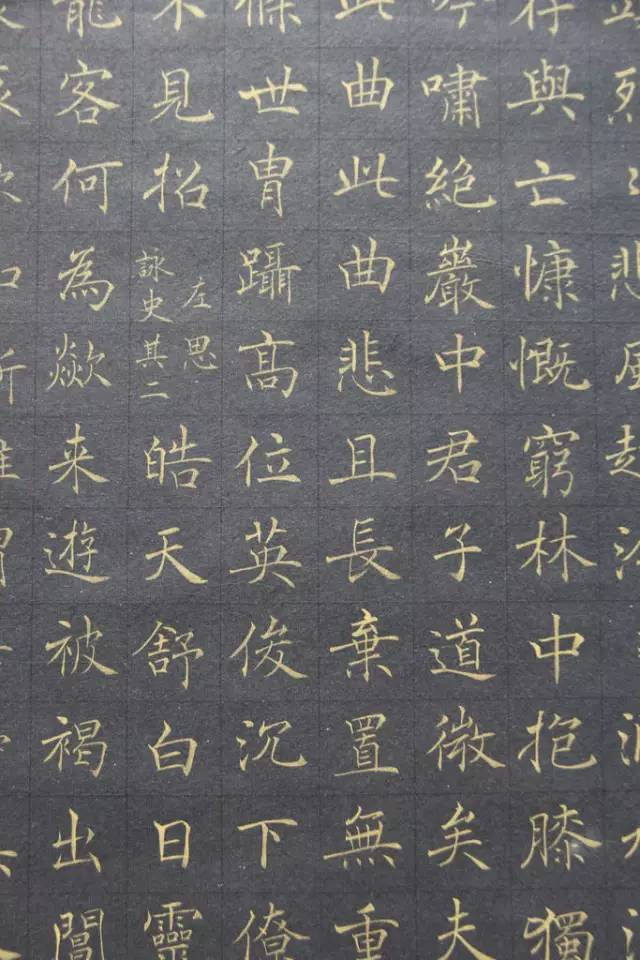 悲風起
存與亡慷慨窮林中抱膝獨
吟嘯絕巖中君子道微矣夫
此曲此曲悲且長棄置無重
條世冑躡高位英俊沉下僚
不見招
左思
詠史其二
皓天舒白日靈
龍客何為欻来遊被褐出閶